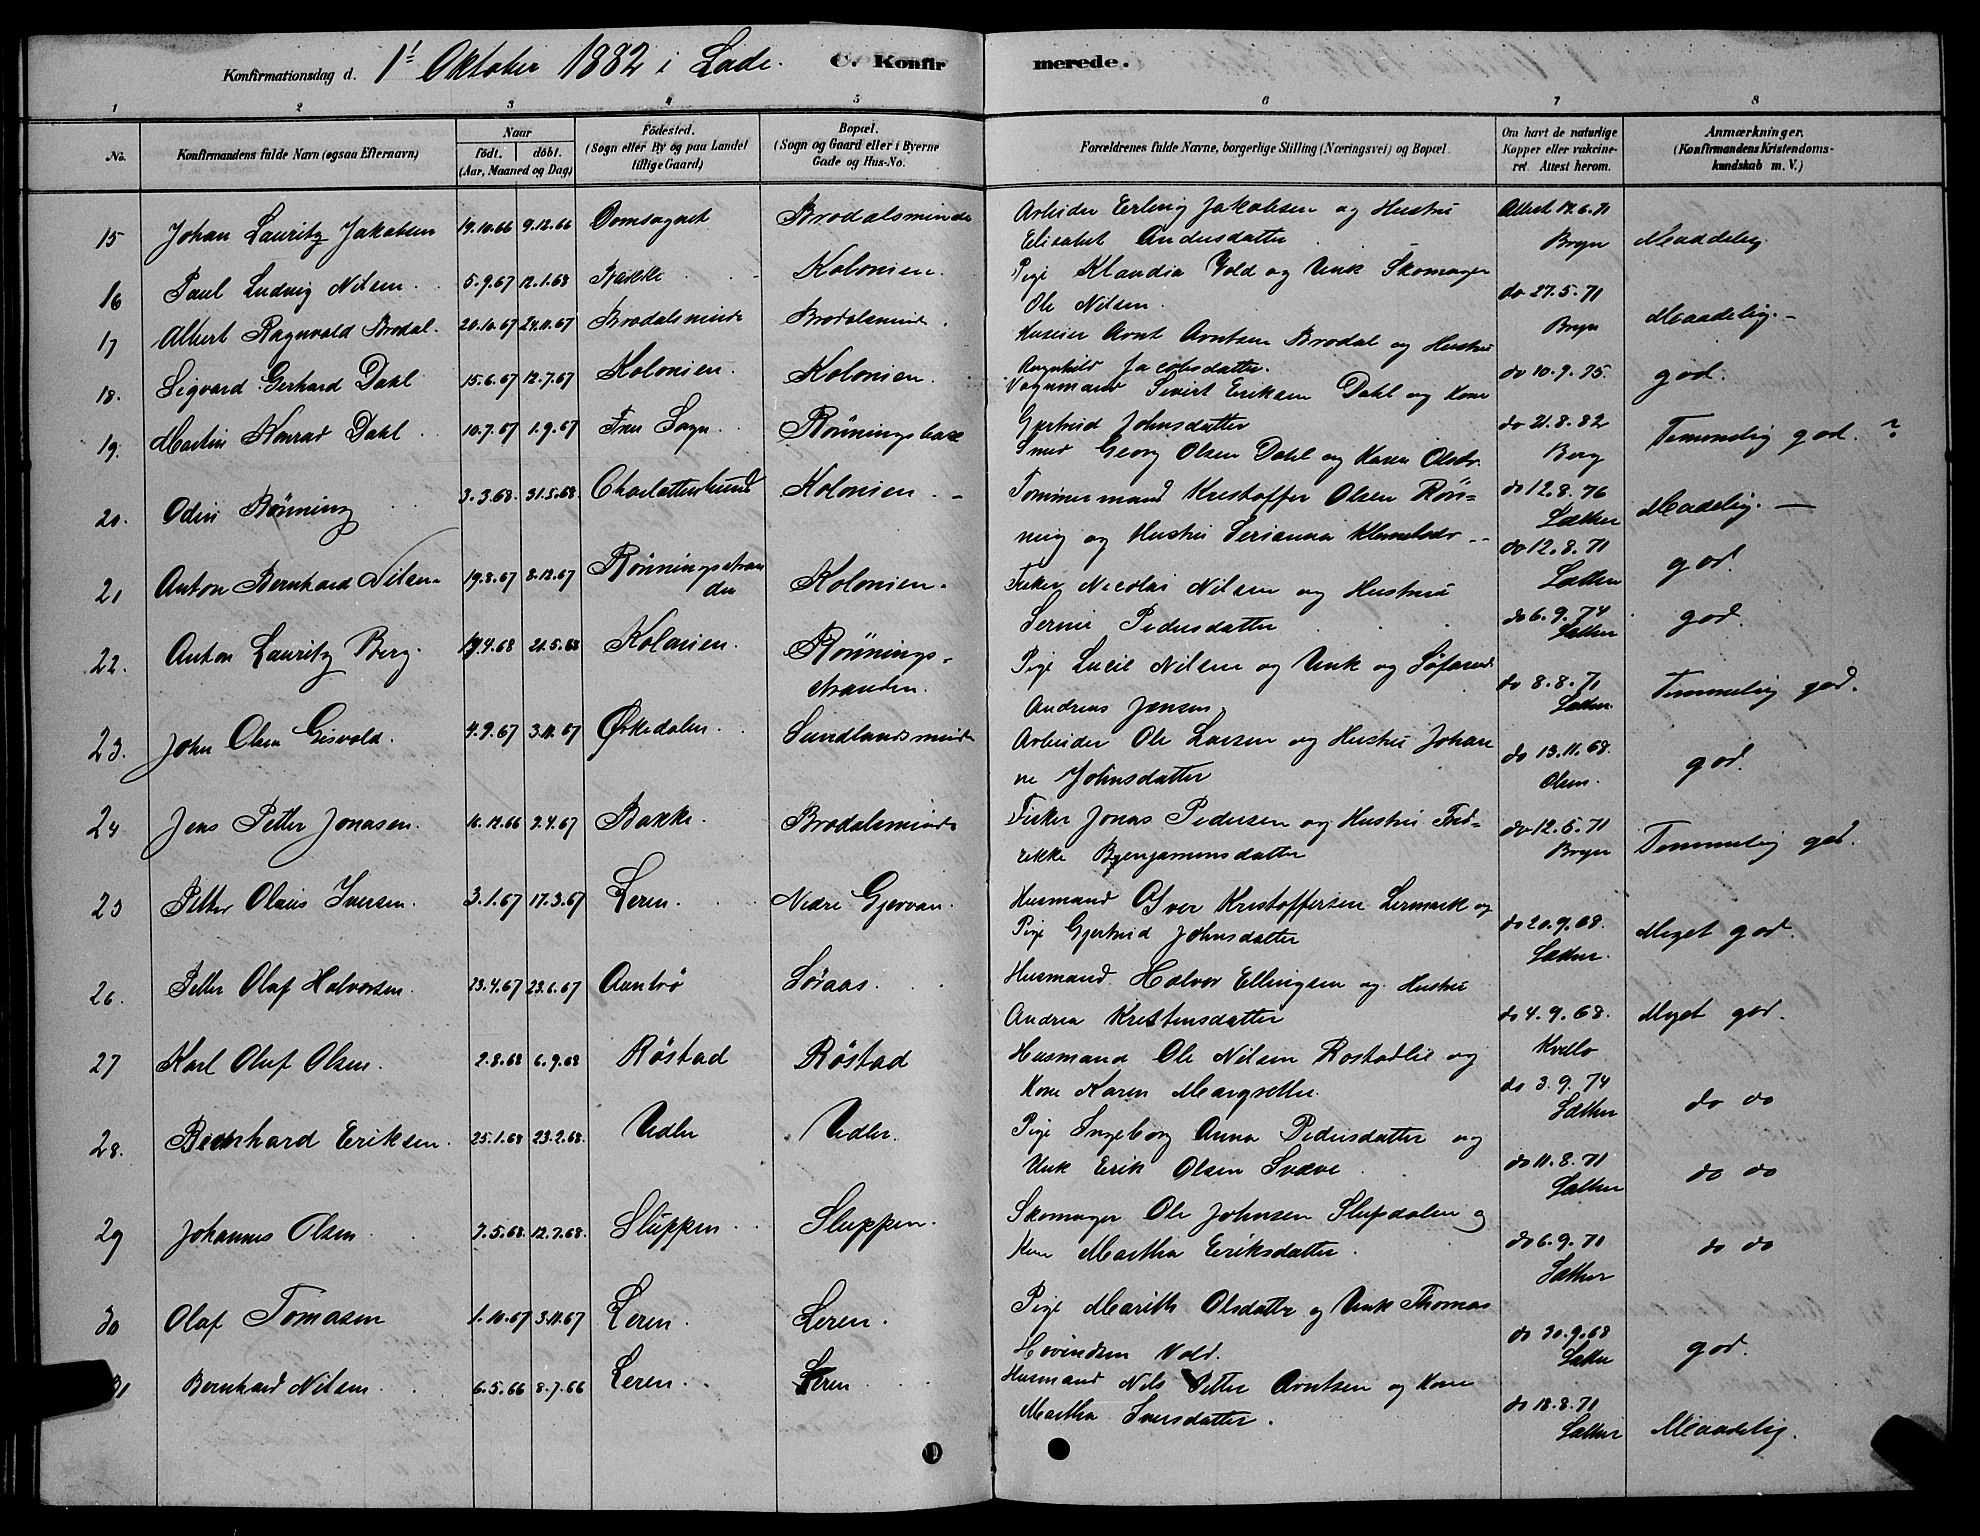 Konfirmationsdag d. 1ste Oktober 1882 i Lade. C. Konfirmerede.
1 2 3 4 5 6 7 8
No. Konfirmandens fulde Navn (ogsaa Efternavn) Naar födt. döbt. (Aar, Maaned og Dag) Födested. (Sogn eller By og paa Landet tillige Gaard) Bopæl. (Sogn og Gaard eller i Byerne Gade og Hus-No. Forældrenes fulde Navne, borgerlige Stilling (Næringsvei) og Bopæl. Om havt de naturlige Kopper eller vakcineret. Attest herom. Anmærkninger. (Konfirmandens Kristendomskundskab m. V.)
15 Johan Lauritz Jakobsen 19.10.66 9.12.66 Domsognet Brodalsminde Arbeider Erling Jakobsen og Hustru Elisabet Andersdatter Attest 12.6.71 Bryn Maadelig
16 Paul Ludvig Nilsen 5.9.67 12.1.68 Bakke Kolonien. Pige Klaudia Vold og Unk Skomager Ole Nilsen do 27.5.71 Bryn Maadelig.
17 Albert Ragnvald Brodal. 20.10.67 24.11.67 Brodalsminde Brodalsminde Huseier Arnt Arntsen Brodal og Hustru Ragnhild Jacobsdatter. do 10.9.75. god.
18. Sigvard Gerhard Dahl 15.6.67 12.7.67 Kolonien. Kolonien. Vognmand Sivert Eriksen Dahl og Kone Gjertrud Johnsdatter do 21.8.82 Berg Temmelig god. ?
19. Martin Konrad Dahl 10.7.67 1.9.67 Frue Sogn Rönningsbakk Smed Georg Olsen Dahl og Karen Olsdr.
20. Odin Rönning 3.3.68. 31.5.68. Charlottenlund Kolonien. Tommermand Kristoffer Olsen Rönning og Hustru Serianna Klemetsdr do 12.8.76 Sæther Madelig.
21 Anton Bernhard Nilsen 19.8.67 8.12.67 Rönningsstranden Kolonien. Fisker Nicolai Nilsen og Hustru Serine Pedersdatter do 12.8.71 Sæther god.
22. Anton Lauritz Berg. 19.4.68 21.5.68 Kolonien. Rönningsstranden. Pige Lucie Nilsen og Unk og Söfarende Andreas Jensen. do 6.9.74 Sæther god.
23. John Olsen Gisvold. 4.9.67 3.11.67 Ørkedalen. Sundlandsminde Arbeider Ole Larsen og Hustru Johanne Johnsdatter do 8.8.71 Sæther. Temmelig god. do 13.11.68. Olsen. god.
24 Jens Petter Jonasen. 16.12.66 2.4.67 Bakke. Brodalsminde Fisker Jonas Pedersen og Hustru Fredrikke Benjaminsdatter do 12.6.71 Bryn Temmelig god.
25 Petter Olaus Iversen. 3.1.67 17.3.67 Leren. Nedre Gjervan. Husmand Iver Kristoffersen Lermark og Pige Gjertrud Johnsdatter do 20.9.68. Sæther. Meget god.
26. Petter Olaf Halvorsen. 23.4.67 23.6.67 Auntrö Söraas. Husmand Halvor Ellingsen og Hustru Andrea Kristensdatter do 4.9.68. Kvello Meget god.
27 Karl Oluf Olsen. 2.8.68 6.9.68 Røstad Røstad Husmand Ole Nilsen Rostadlie og Kone Karen Margrethe. do 3.9.74 Sæther do do
28. Bernhard Eriksen. 25.1.68 23.2.68. Udler Udler. Pige Ingeborg Anna Pedersdatter og Unk Erik Olsen Svæve do 11.8.71 Sæther do do
29 Johannes Olsen 7.5.68. 12.7.68. Sluppen Sluppen. Skomager Ole Johnsen Slupdalen og Kone Martha Eriksdatter. do 6.9.71 Sæther do do
30 Olaf Tomasen 1.10.67 3.11.67 Leren. Leren. Pige Marith Olsdatter og Unk Thomas Hovindsen Vold. do 30.9.68 Sæther god.
31 Bernhard Nilsen 6.5.66 8.7.66 Leren. Leren Husmand Nils Petter Arntsen og Kone Martha Iversdatter. do 18.8.71 Sæther Maadelig.